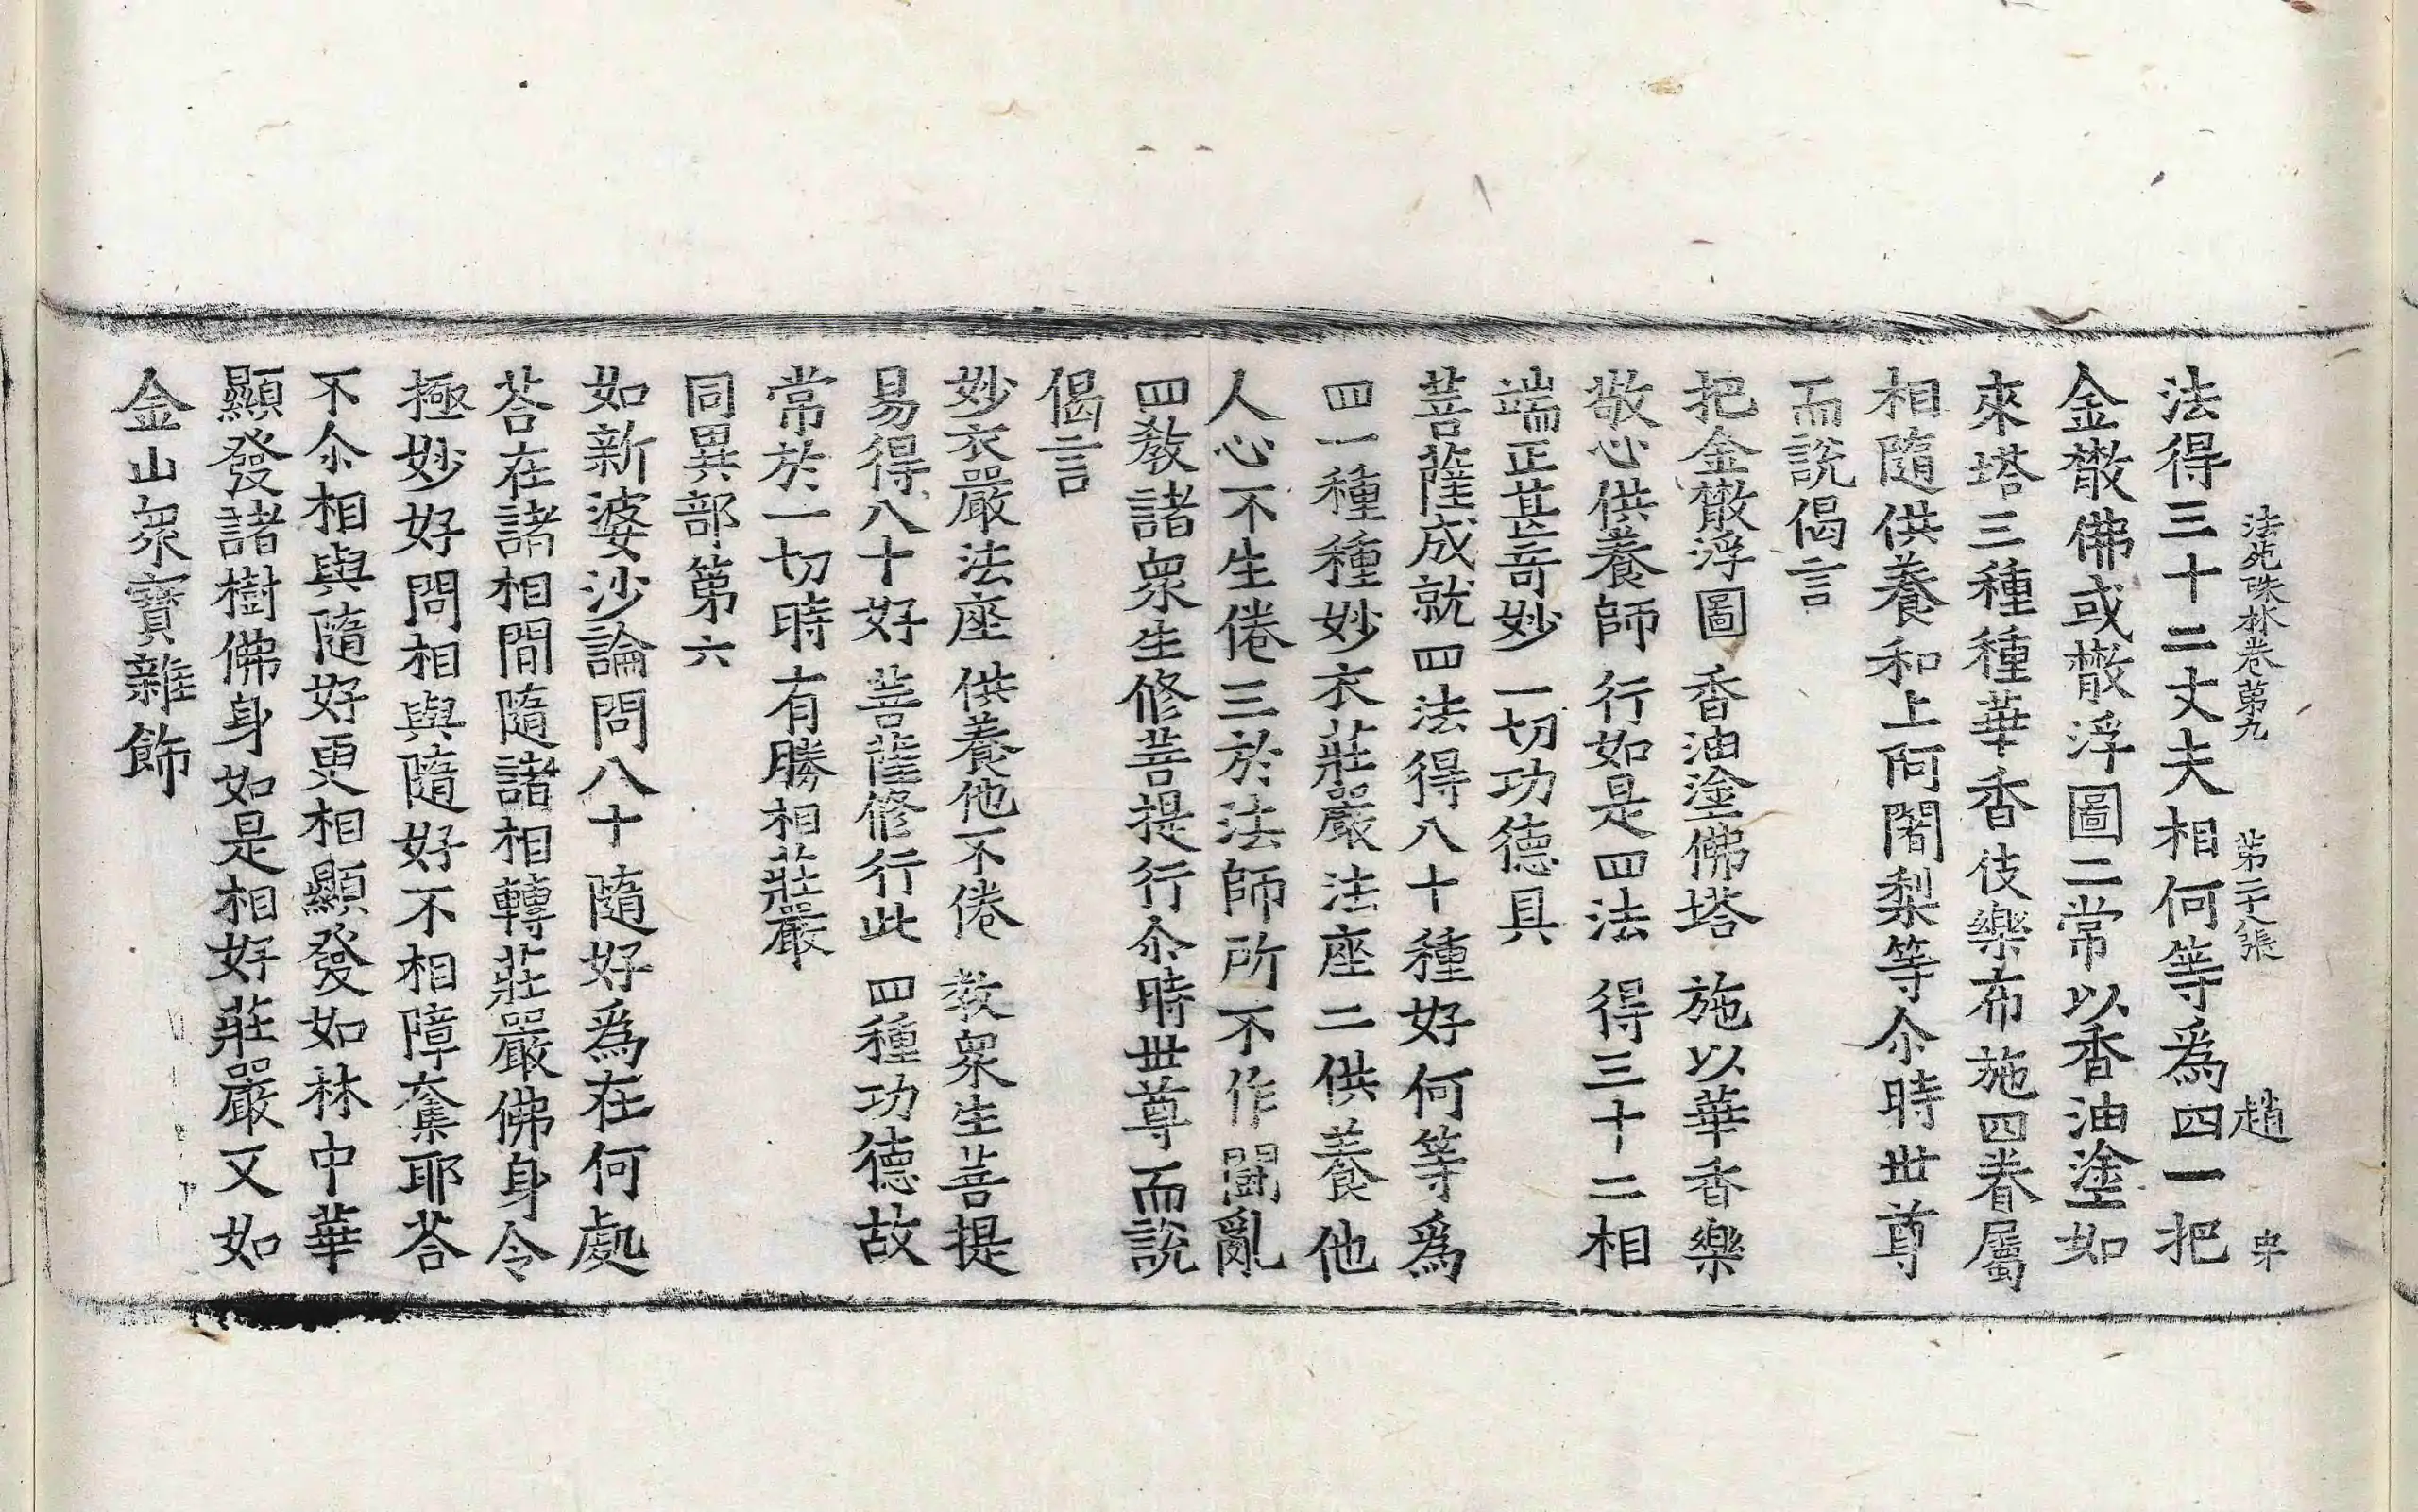 法苑珠林卷第九 第二十八張 趙
法得三十二丈夫相何等爲四一把
金㪚佛或㪚浮圖二常以香油塗如
來塔三種種華香伎樂布施四眷屬
相隨供養和上阿闍梨等尒時世尊
而說偈言
把金㪚浮圖 香油塗佛塔 施以華香樂
敬心供養師 行如是四法 得三十二相
端正甚奇妙 一切功德具
菩薩成就四法得八十種好何等爲
四一種種妙衣莊嚴法座二供養他
人心不生倦三於法師所不作鬪亂
四教諸衆生修菩提行尒時世尊而說
偈言
妙衣嚴法座 供養他不倦 教衆生菩提
易得八十好 菩薩修行此 四種功德故
常於一切時 有勝相莊嚴
同異部第六
如新婆沙論問八十隨好爲在何處
荅在諸相間隨諸相轉莊嚴佛身令
極妙好問相與隨好不相障奪耶荅
不尒相與隨好更相顯發如林中華
顯發諸樹佛身如是相好莊嚴又如
金山衆寶雜飾